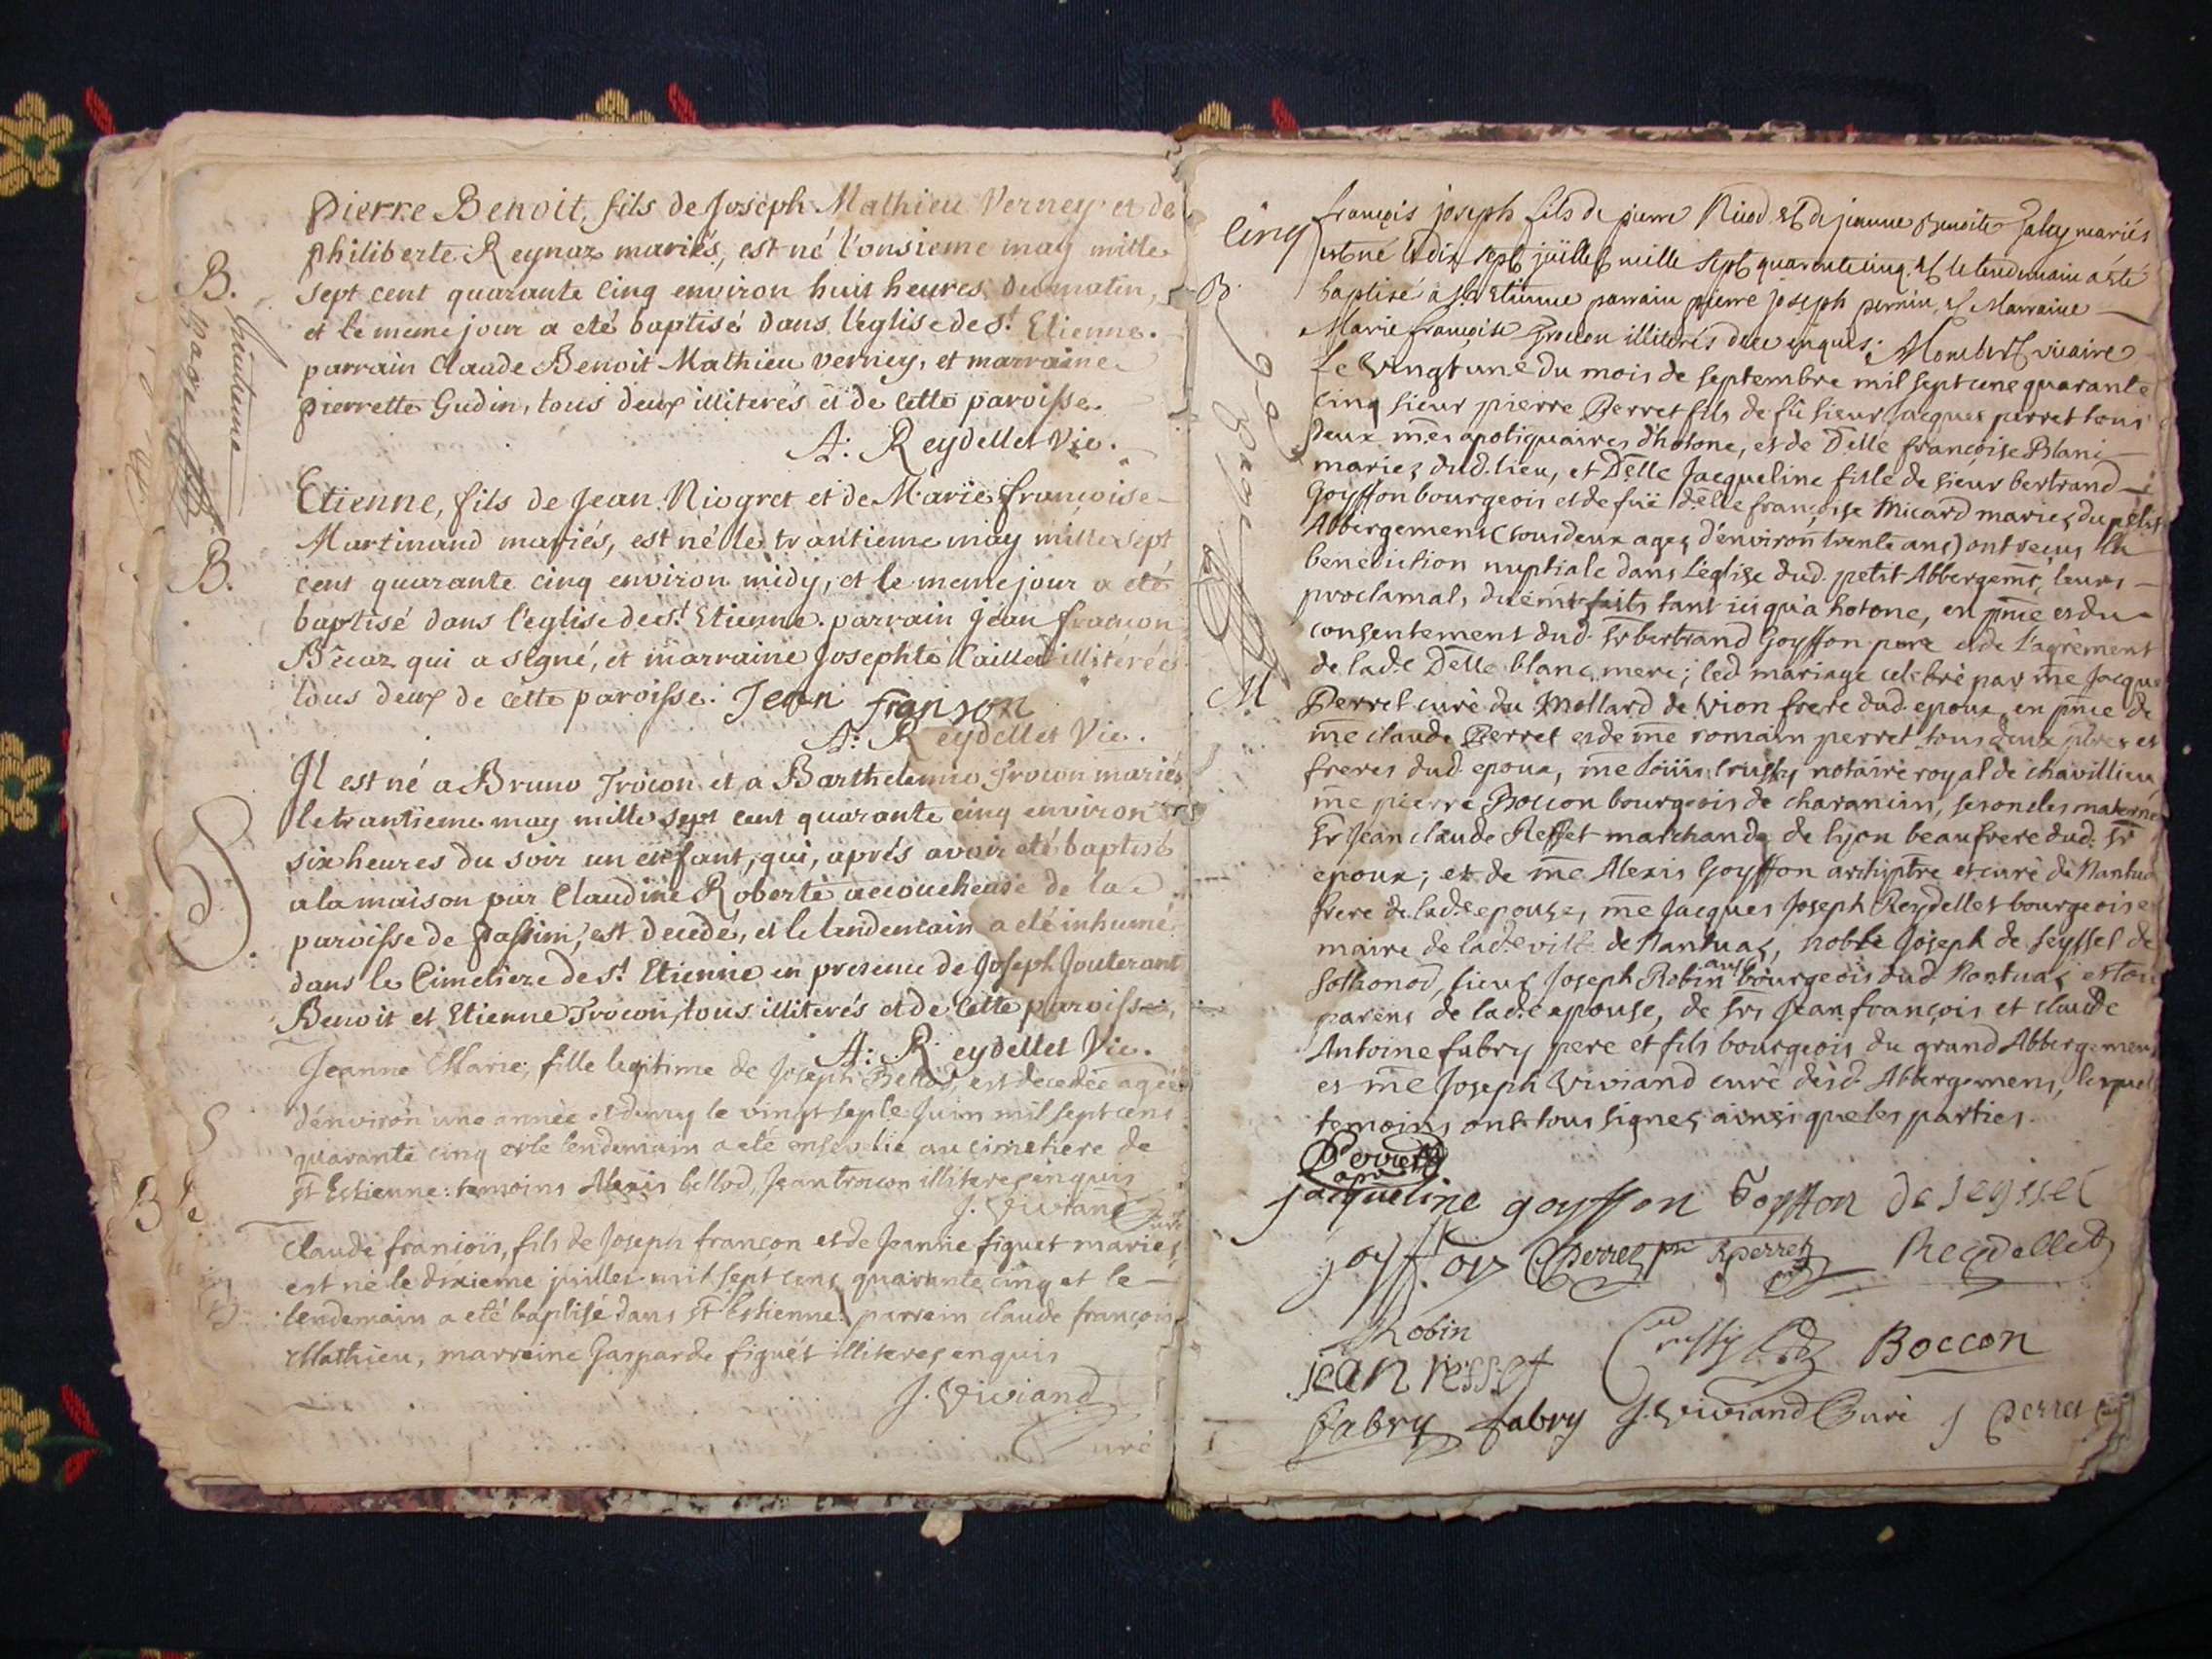 Pierre Benoit, fils de Joseph Mathieu Verney et de
philiberte Reynaz mariés, est né l'onsieme may mille
sept cent quarante cinq environ huit heures du matin,
et le meme jour a eté baptisé dans l'eglise de St. Etienne.
parrain Claude Benoit Mathieu Verney, et marraine
pierrette Gudin, tous deux illiterés et de cette paroisse.
A: Reydellet Vic.
B.
page
B.
Etienne, fils de Jean Niogret et de Marie françoise
Martinand mariés, est né le trantieme may mille sept
cent quarante cinq environ midy, et le meme jour a eté
baptisé dans l'eglise de St. Etienne. parrain Jean françon
qui a segné, et marraine Josephte illiterée
tous deux de cette paroisse. Jean franson
A: Reydellet Vic.
Il est né a Bruno Trocon et a Barthelemie Trocon mariés
le trantieme may mille sept cent quarante cinq environ
six heures du soir un enfant, qui, aprés avoir eté baptisé
a la maison par Claudine Roberte accoucheuse de la
paroisse de passin, est decedé, et le lendemain a eté inhumé
dans le Cimetiere de St. Etienne en presence de Joseph Jouterant
Benoit et Etienne Trocon, tous illiterés et de cette paroisse.
A: Reydellet Vic.
S
Jeanne Marie, fille legitime de Joseph Bellod, est decedée agée
d'environ une année et demy le vingt sept Juin mil sept cens
quarante cinq et le lendemain a eté ensevelie au cimetiere de
St Estienne: temoins Alexis bellod, Jean trocon illiteres enquis
J. Viviand Curé
B
Claude françois, fils de Joseph françon et de Jeanne figuet mariés
est né le dixieme juillet mil sept cens quarante cinq et le
lendemain a eté baptisé dans St Estienne. parrein claude françois
Mathieu, marreine Gasparde figuet illiteres enquis
J. Viviand
Curé
cinq
B.
françois joseph fils de pierre Niod et de jeanne Benoite mariés
est né le dix sept juillet mille sept quarente cinq et le lendemain a été
baptisé a St Etienne parrain pierre joseph perrin, et Marraine
Marie françoise Trocon illiterés de ce enquis. Montbert vicaire
page
M.
Le vingt une du mois de septembre mil sept cens quarante
cinq sieur pierre Perret fils de fû sieur Jacques perret tous
deux mes apotiquaires d'hotone, et de Delle françoise Blanc
mariez dud. lieu, et Delle Jacqueline fille de sieur bertrand
Goyffon bourgeois et de fuë delle françoise Micard mariez du petit
Abbergement (tous deux agez d'environ trente ans) ont reçus la
benediction nuptiale dans l'eglise dud. petit Abbergemt, leurs
proclamat. duëmt faits tant ici qu'a hotone, en pnce et du
consentement dud. Sr bertrand Goyffon pere et de l'agrément
de lade Delle blanc mere; led mariage celebré par me Jacque
Perret curé du Mollard de Vion frere dud. epoux, en pnce de
me claude Perret et de me romain perret tous deux ptres et
freres dud epoux, me notaire royal de chavillieu
me pierre Boccon bourgeois de charancin, ses oncles maternels
Sr Jean claude Resset marchand de lyon beaufrere dud. Sr
epoux; et de me Alexis Goyffon archiptre et curé de Nantua
frere de lade epouse, me Jacques Joseph Reydellet bourgeois et
maire de lade ville de Nantuaz, noble Joseph de Seyssel de
Sothonod, sieur Joseph Robin aussy bourgeois dud Nantuaz et tous
parens de lade epouse, de Srs Jean françois et claude
Antoine fabry pere et fils bourgeois du grand Abbergement
et me Joseph Viviand curé desd. Abbergemens, lesquels
temoins ont tous signez ainsi que les parties.
Perret
jacqueline goyffon Goyffon De Seyssel
goyffon C Perret ptre R perret Reydellet
Robin
Jean resset Boccon
Fabry fabry J. Viviand Curé J Perret